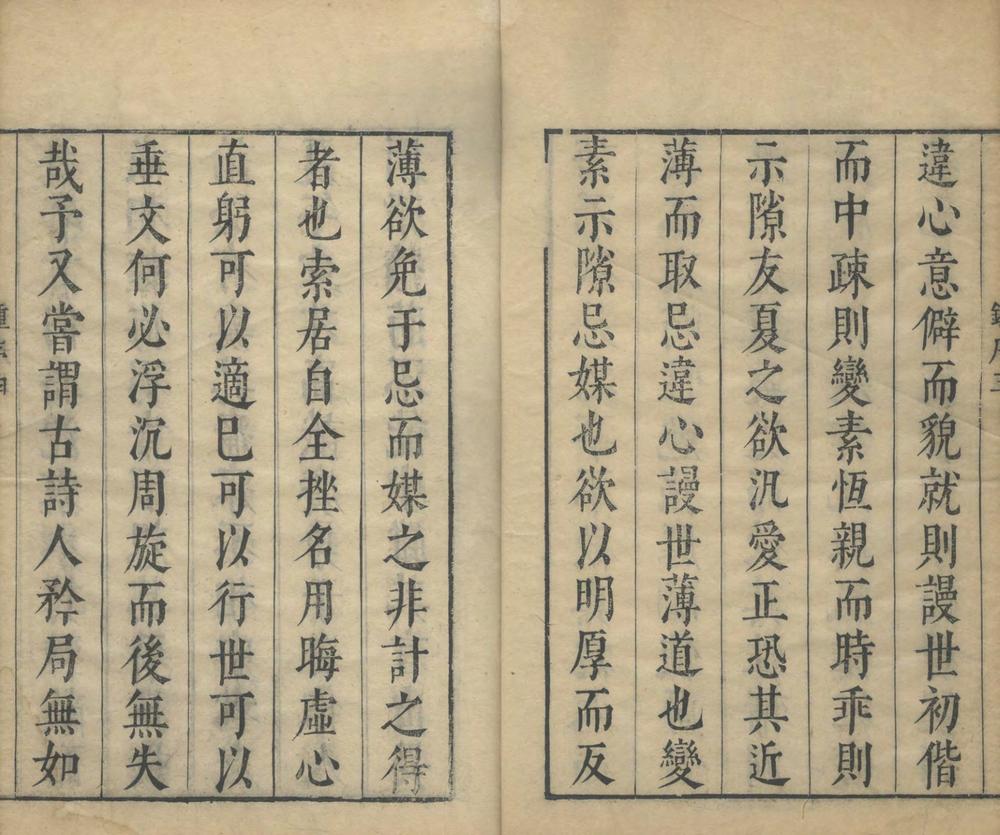 違心意僻而貌就則謾世初偕
而中疎則變素恆親而時乖則
示隙友夏之欲汎愛正恐其近
薄而取忌違心謾世薄道也變
素示隙忌媒也欲以明厚而反
薄欲免于忌而媒之非計之得
者也索居自全挫名用晦虛心
直躬可以適巳可以行世可以
垂文何必浮沉周旋而後無失
哉予又嘗謂古詩人矜局無如